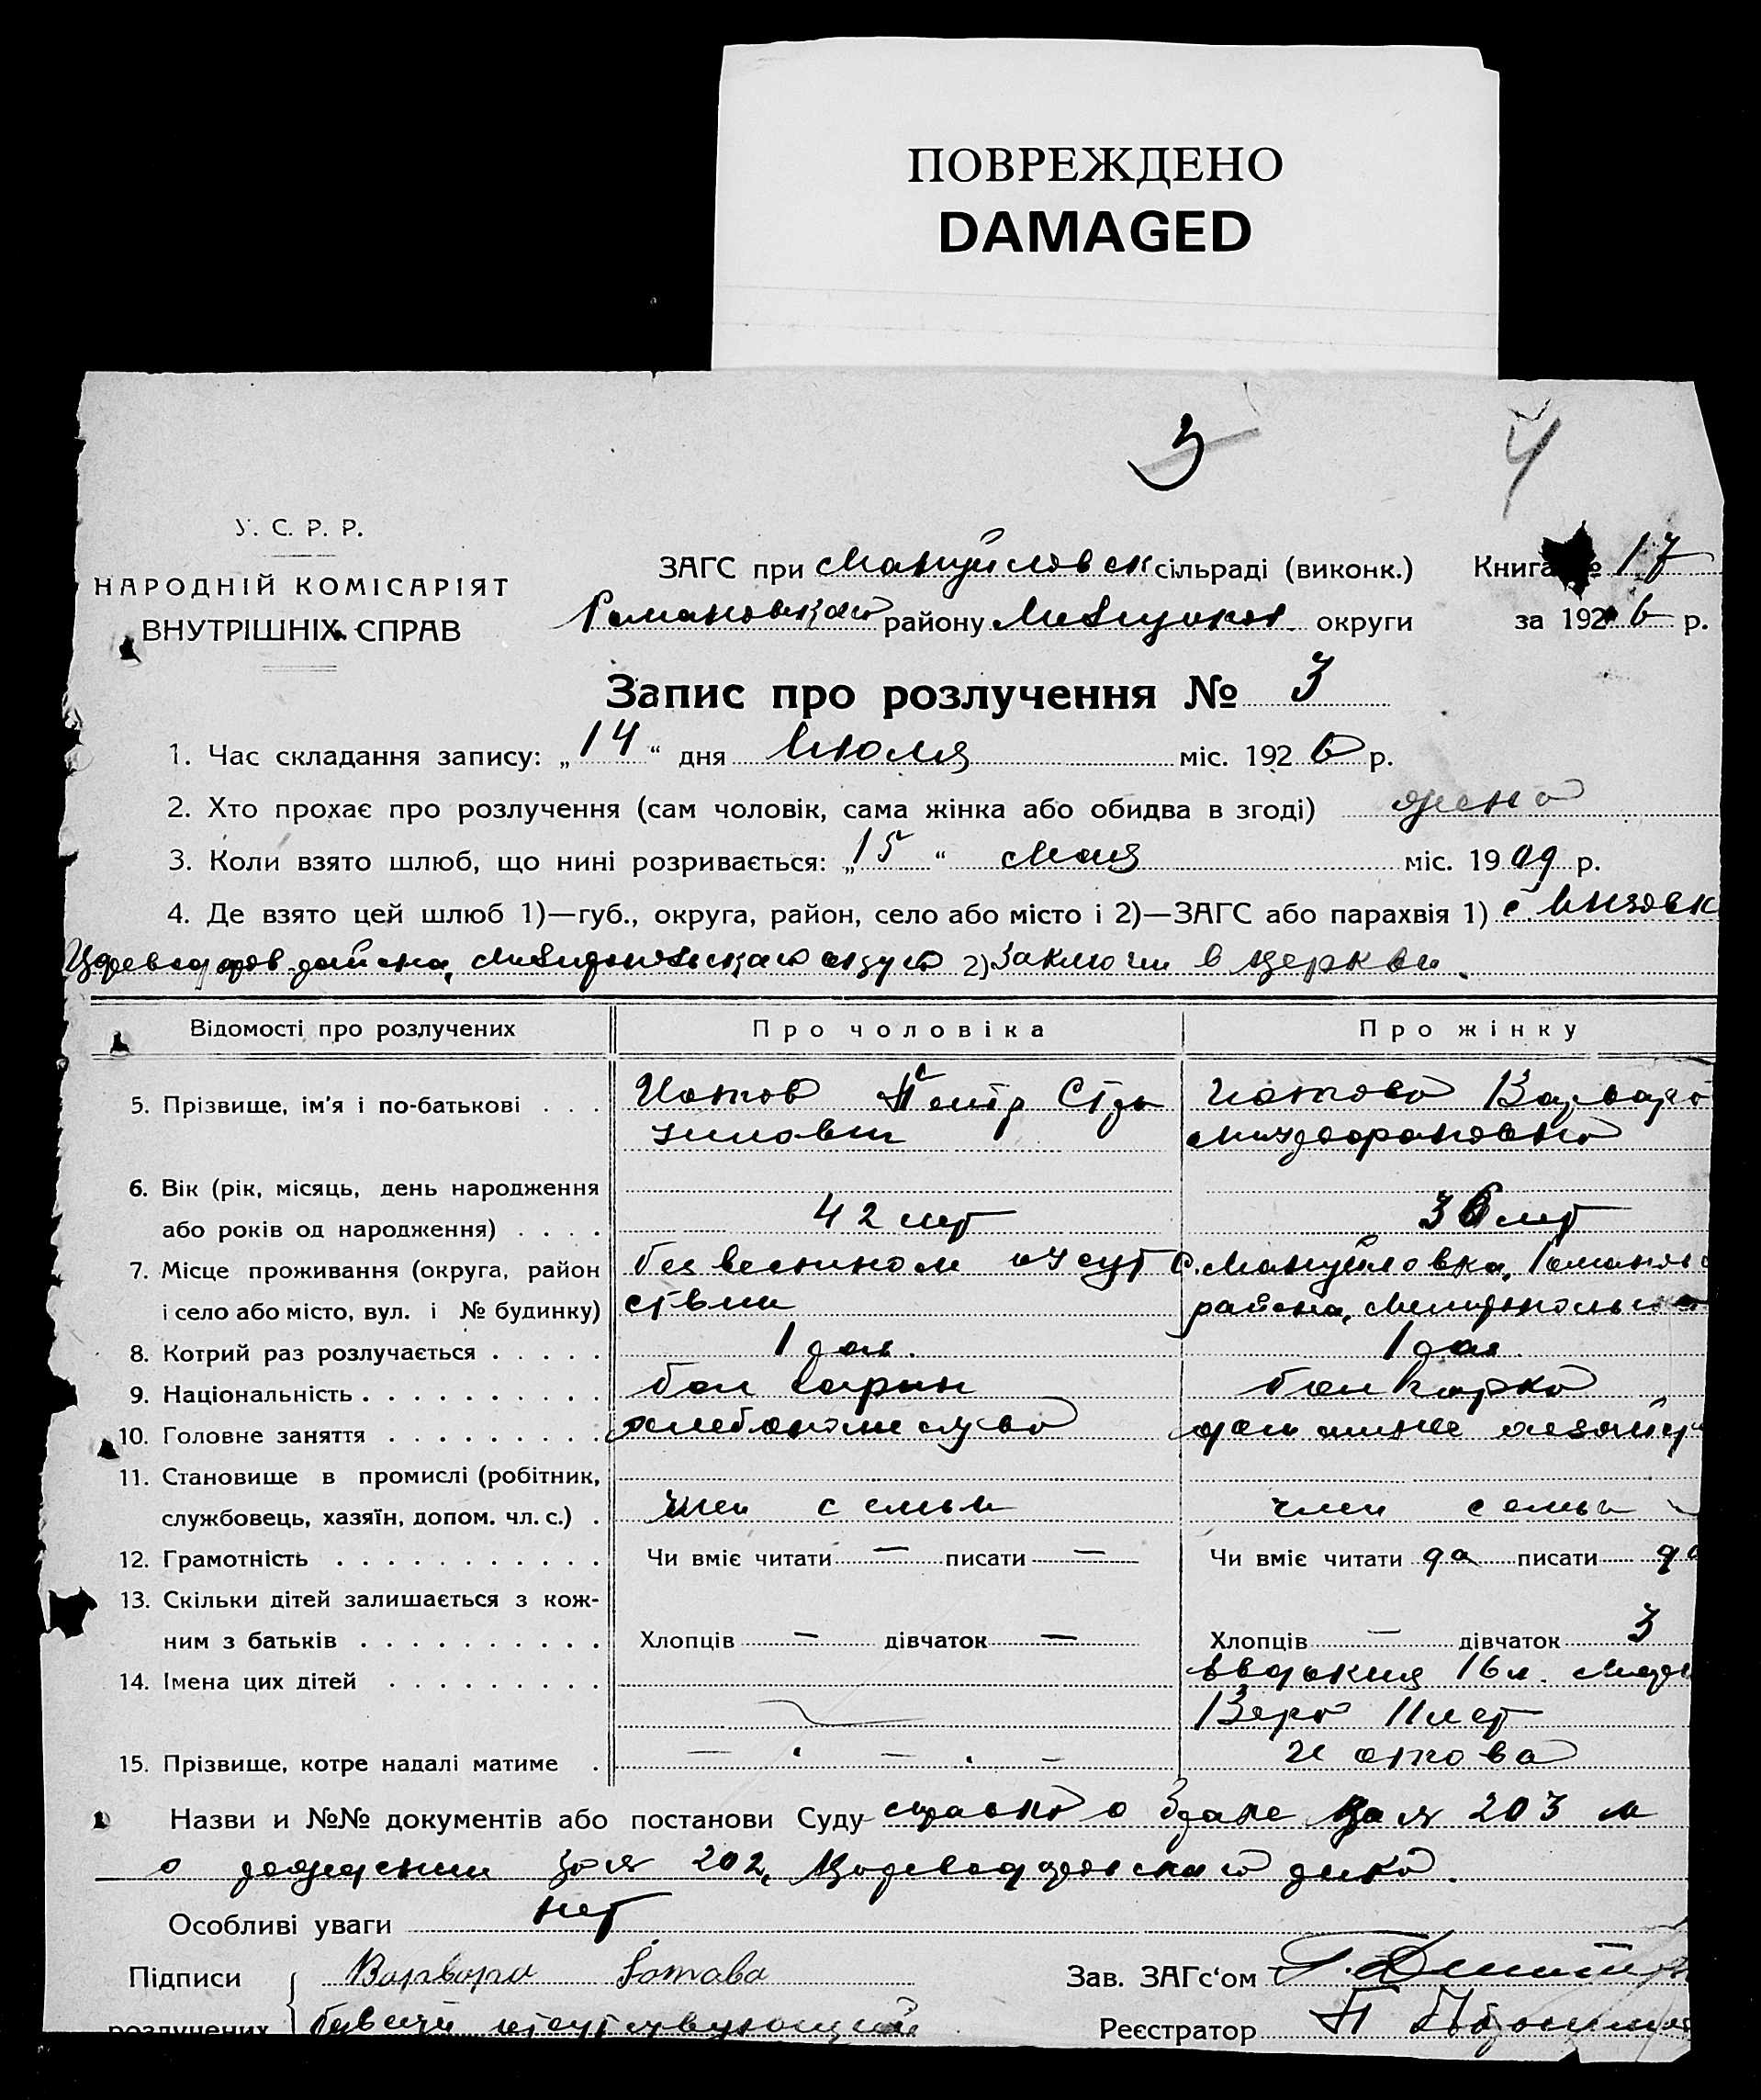 ПОВРЕЖДЕНО
DAMAGED
3
4
У. С. Р. Р.
НАРОДНІЙ КОМІСАРІЯТ
ВНУТРІШНІХ СПРАВ
ЗАГС при Мануйловск сільраді (виконк.)
Книга № 17
Романовского району округи
за 1926 р.
Запис про розлучення № 3
1. Час складання запису: „14“ дня Июля міс. 1926 р.
2. Хто прохає про розлучення (сам чоловік, сама жінка або обидва в згоді) жена
3. Коли взято шлюб, що нині розривається: „15“ Мая міс. 1909 р.
4. Де взято цей шлюб 1)—губ., округа, район, село або місто і 2)—ЗАГС або парахвія 1) с.
района, 2) в церкви.
Відомості про розлучених
Про чоловіка
Про жінку
5. Прізвище, ім'я і по-батькові . . .
Иотов Петр
Иотова Варвара
6. Вік (рік, місяць, день народження
або років од народження) . . . .
42 лет
36 лет
7. Місце проживання (округа, район
і село або місто, вул. і № будинку)
безвестном отсут
ствии
с. Мануйловка,
района,
8. Котрий раз розлучається . . . . .
1 раз.
1 раз
9. Національність . . . . . . . . . .
болгарин
болгарка
10. Головне заняття . . . . . . . . .
хлебопашество
домашнее
11. Становище в промислі (робітник,
службовець, хазяїн, допом. чл. с.) .
член семьи
член семьи
12. Грамотність . . . . . . . . . . .
Чи вміє читати — писати —
Чи вміє читати да писати да
13. Скільки дітей залишається з кож-
ним з батьків . . . . . . . . . .
Хлопців — дівчаток —
Хлопців — дівчаток 3
14. Імена цих дітей . . . . . . . . .
Евдокия 16 л.
Вера 11 лет
15. Прізвище, котре надалі матиме .
— . — . —
Иотова
Назви и №№ документів або постанови Суду справка о браке за № 203 и
о рождении за № 202,
Особливі уваги нет
Підписи
розлучених
Варвара Іотова
отсутствующий
Зав. ЗАГс'ом
Реєстратор